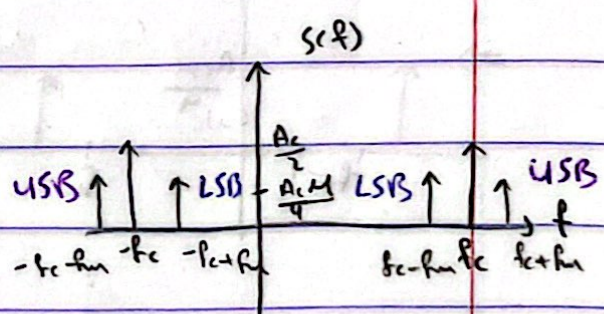 S(f)
Ac/2
USB LSB AcM/4 LSB USB
f
-fc-fm -fc -fc+fm fc-fm fc fc+fm